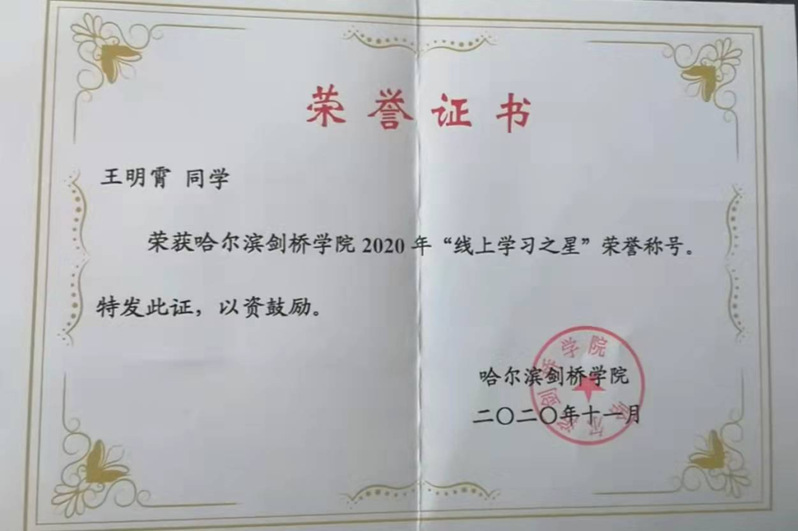 荣誉证书
王明霄 同学
荣获哈尔滨剑桥学院 2020 年“线上学习之星”荣誉称号。
特发此证，以资鼓励。
哈尔滨剑桥学院
二〇二〇年十一月